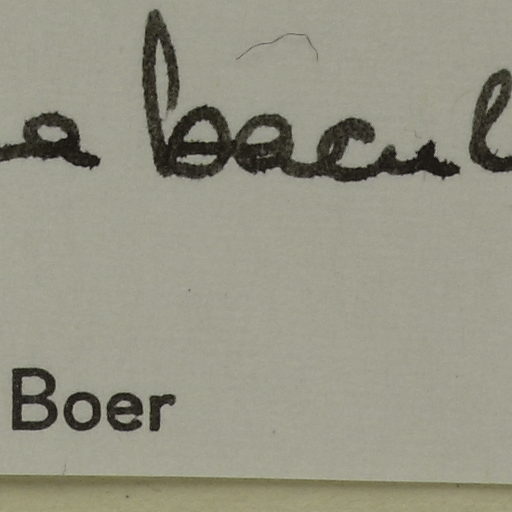 a bacul
Boer